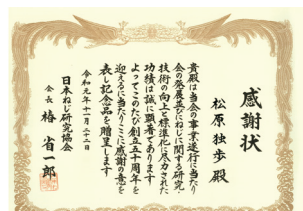 感謝状
松原独歩殿
貴殿は当会の事業遂行に当たり
会の発展並びにねじに関する研究・
技術の向上と標準化に尽力された
功績は誠に顕著であります
よってこのたび創立五十周年を
迎えるに当たりここに感謝の意を
表し記念品を贈呈します
令和元年十一月二十二日
日本ねじ研究協会
会長 椿省一郎